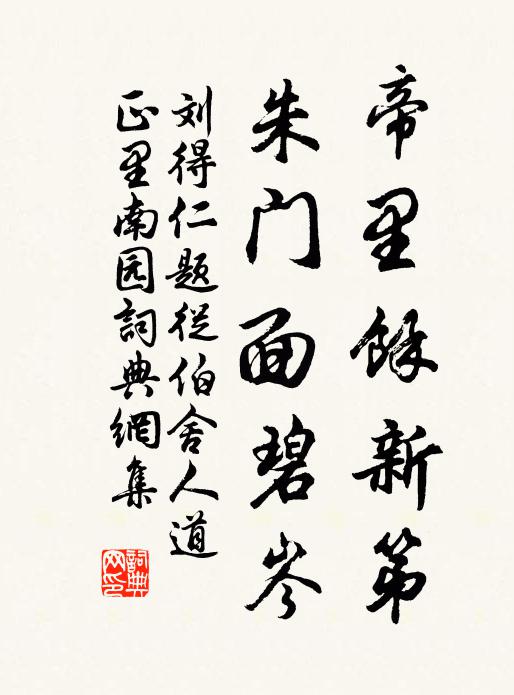 帝里餘新第
朱门面碧岑
刘得仁题從伯舍人道
正里南园詞典網集
詞典网印